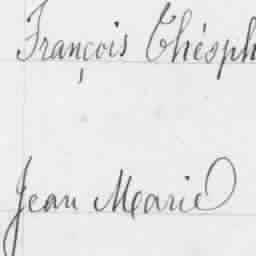 François Thésph
Jean Marie